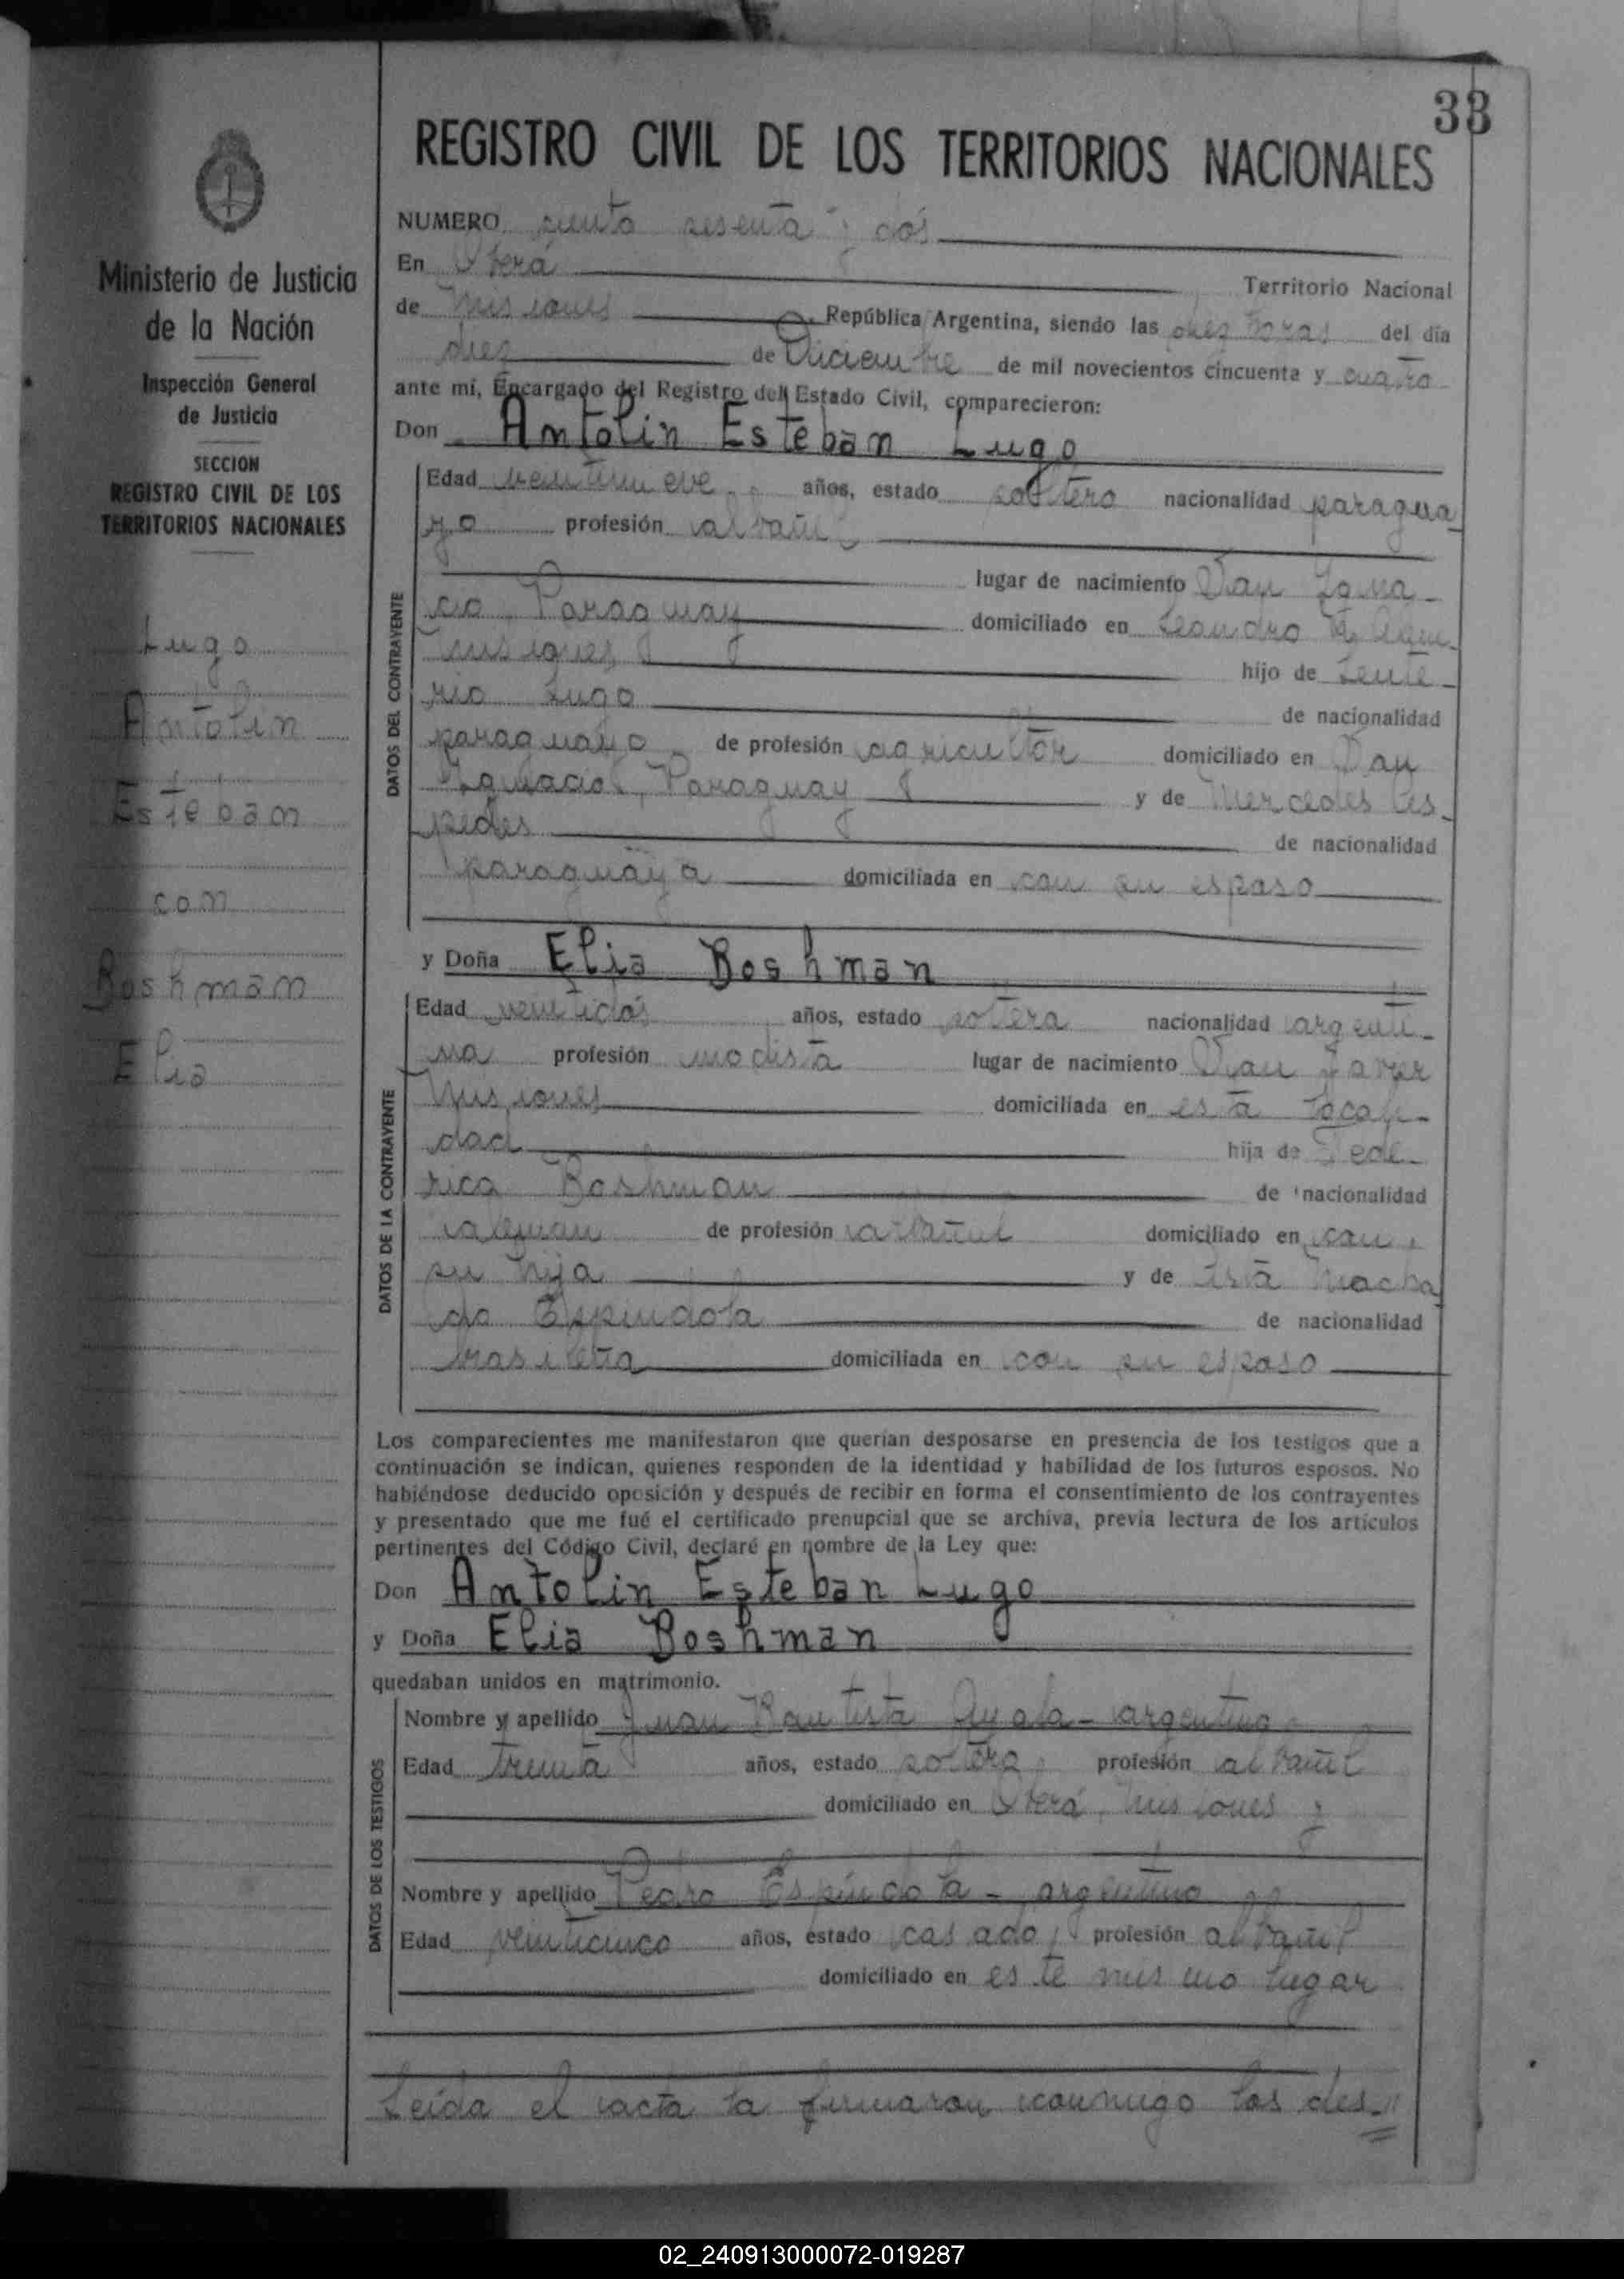 33
REGISTRO CIVIL DE LOS TERRITORIOS NACIONALES
Ministerio de Justicia
de la Nación
Inspección General
de Justicia
SECCION
REGISTRO CIVIL DE LOS
TERRITORIOS NACIONALES
Lugo
Antolin
Esteban
con
Boshman
Elia
NUMERO ciento sesenta y dós
En Oberá Territorio Nacional
de Misiones República Argentina, siendo las diez horas del día
diez de Diciembre de mil novecientos cincuenta y cuatro
ante mí, Encargado del Registro del Estado Civil, comparecieron:
Don Antolin Esteban Lugo
Edad veintinueve años, estado soltero nacionalidad paragua
yo profesión albañil
lugar de nacimiento San Igna-
cio, Paraguay domiciliado en Leandro N. Alem-
Misiones hijo de Leute-
rio Lugo de nacionalidad
paraguayo de profesión agricultor domiciliado en San
Ignacio, Paraguay y de Mercedes Ces-
pedes de nacionalidad
paraguaya domiciliada en con su esposo
DATOS DEL CONTRAYENTE
y Doña Elia Boshman
Edad veintidós años, estado soltera nacionalidad argenti-
na profesión modista lugar de nacimiento San Javier
Misiones domiciliada en esta locali-
dad hija de Fede-
rico Boshman de nacionalidad
aleman de profesión albañil domiciliado en con
su hija y de Macha
do Espindola de nacionalidad
brasileña domiciliada en con su esposo
DATOS DE LA CONTRAYENTE
Los comparecientes me manifestaron que querían desposarse en presencia de los testigos que a
continuación se indican, quienes responden de la identidad y habilidad de los futuros esposos. No
habiéndose deducido oposición y después de recibir en forma el consentimiento de los contrayentes
y presentado que me fué el certificado prenupcial que se archiva, previa lectura de los artículos
pertinentes del Código Civil, declaré en nombre de la Ley que:
Don Antolin Esteban Lugo
y Doña Elia Boshman
quedaban unidos en matrimonio.
Nombre y apellido Juan Bautista Ayala - argentino
Edad treinta años, estado soltero, profesión albañil
domiciliado en Oberá, Misiones y
Nombre y apellido Pedro Espíndola - argentino
Edad veinticinco años, estado casado, profesión albañil
domiciliado en este mismo lugar
DATOS DE LOS TESTIGOS
Leída el acta la firmaron conmigo los des-"
02_240913000072-019287